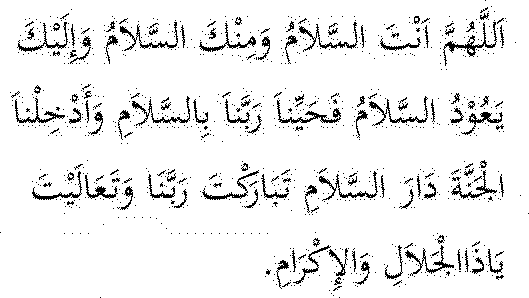 اَللَّهُمَّ اَنْتَ السَّلاَمُ وَمِنْكَ السَّلاَمُ وَإِلَيْكَ
يَعُوْدُ السَّلاَمُ فَحَيِّناَ رَبَّناَ بِالسَّلاَمِ وَأَدْخِلْناَ
الْجَنَّةَ دَارَ السَّلاَمِ تَبَارَكْتَ رَبَّنَا وَتَعَالَيْتَ
يَاذَاالْجَلاَلِ وَالإِكْرَامِ.